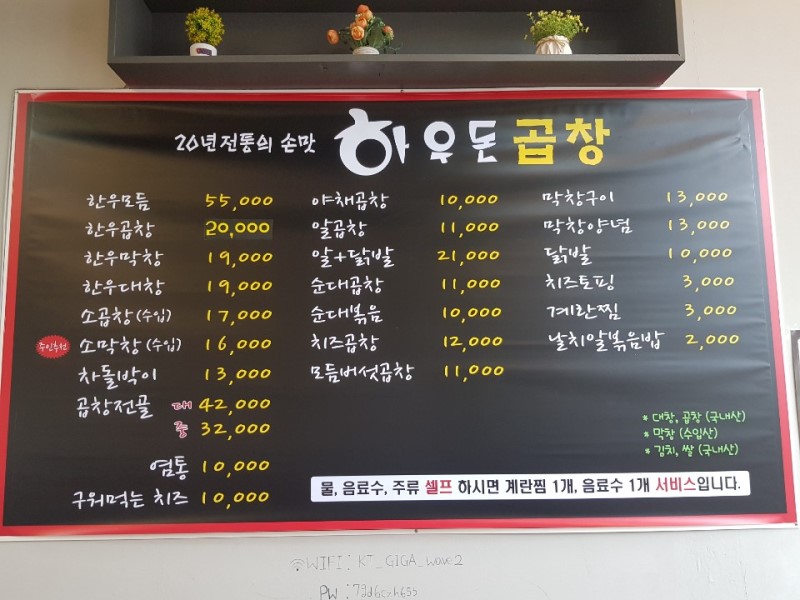 20년전통의 손맛 하우돈곱창
한우모듬 55,000
한우곱창 20,000
한우막창 19,000
한우대창 19,000
소곱창(수입) 17,000
주인추천 소막창(수입) 16,000
차돌박이 13,000
곱창전골 대 42,000
중 32,000
염통 10,000
구워먹는 치즈 10,000
야채곱창 10,000
알곱창 11,000
알+닭발 21,000
순대곱창 11,000
순대볶음 10,000
치즈곱창 12,000
모듬버섯곱창 11,000
막창구이 13,000
막창양념 13,000
닭발 10,000
치즈토핑 3,000
계란찜 3,000
날치알볶음밥 2,000
* 대창, 곱창 (국내산)
* 막창 (수입산)
* 김치, 쌀 (국내산)
물, 음료수, 주류 셀프 하시면 계란찜 1개, 음료수 1개 서비스입니다.
WIFI : KT_GIGA_wave2
PW :